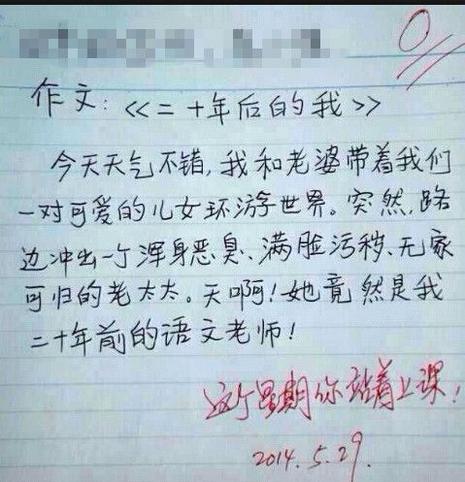 0
作文:<<二十年后的我>>
今天天气不错,我和老婆带着我们
一对可爱的儿女环游世界。突然,路
边冲出一个浑身恶臭、满脸污秽、无家
可归的老太太。天啊!她竟然是我
二十年前的语文老师!
这个星期你站着上课!
2014.5.29.